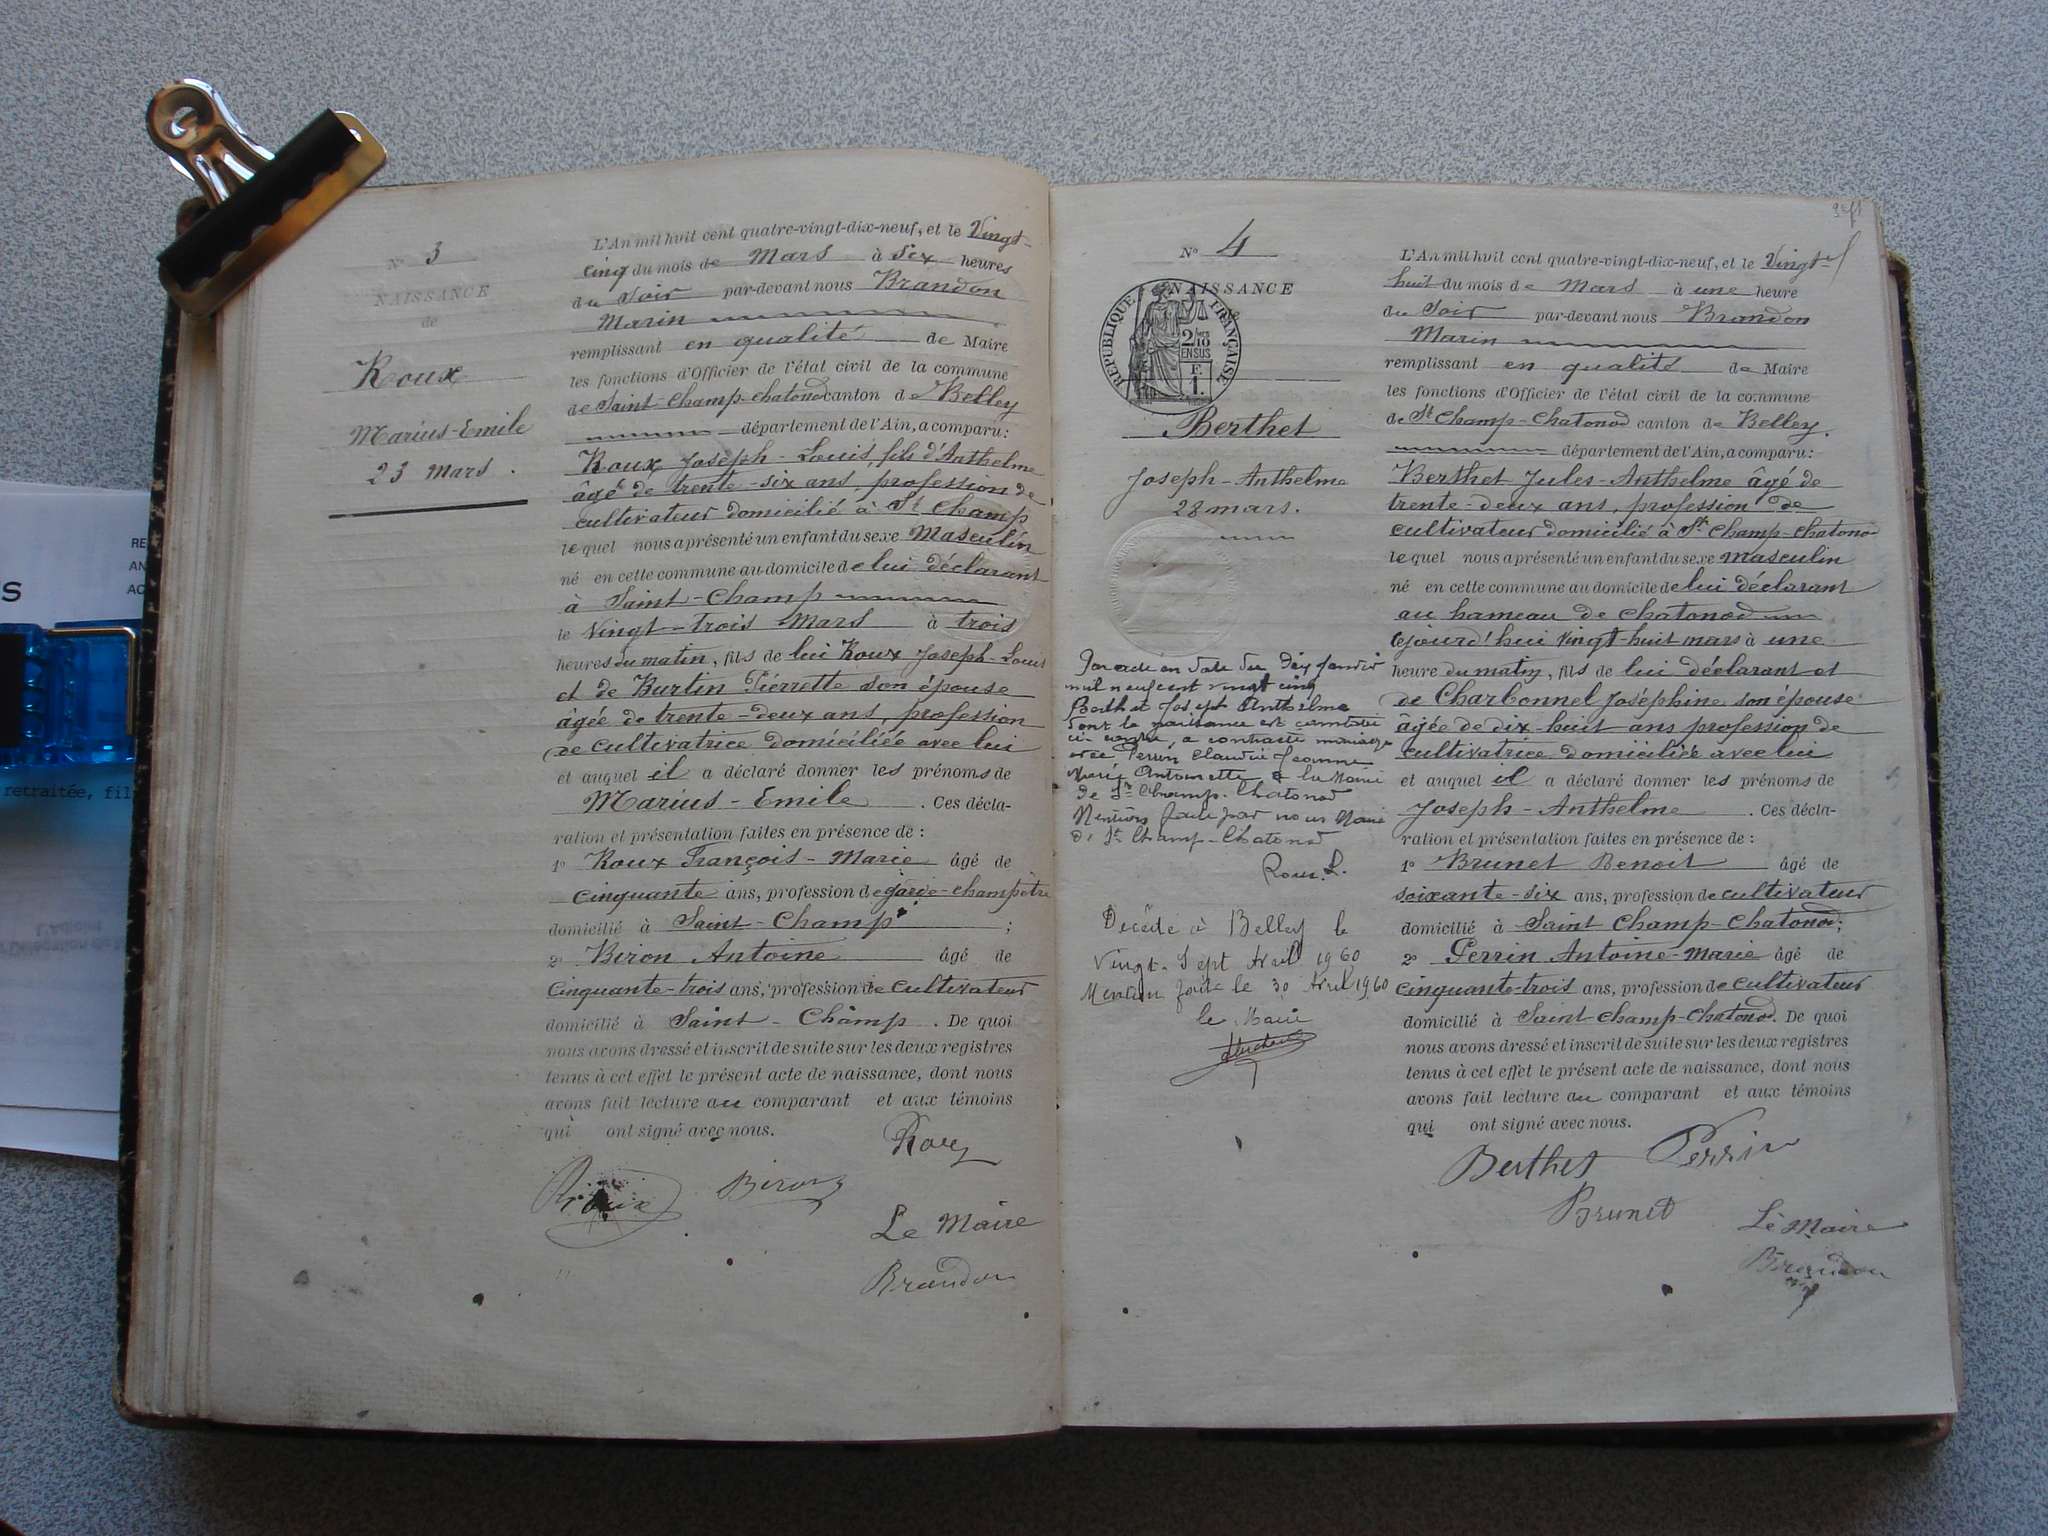 N° 3
NAISSANCE
de
Roux
Marius-Emile
23 Mars.
L'An mil huit cent quatre-vingt-dix-neuf, et le Vingt-
cinq du mois de Mars à Six heures
du Soir par-devant nous Brandon
Marin
remplissant en qualité de Maire
les fonctions d'Officier de l'état civil de la commune
de Saint-Champ-Chatonod canton de Belley
département de l'Ain, a comparu:
Roux Joseph-Louis, fils d'Anthelme
âgé de trente-six ans, profession de
cultivateur domicilié à St Champ
lequel nous a présenté un enfant du sexe Masculin
né en cette commune au domicile de lui déclarant
à Saint-Champ
le Vingt-trois Mars à trois
heures du matin, fils de lui Roux Joseph-Louis
et de Burtin Pierrette son épouse
âgée de trente-deux ans, profession
de cultivatrice domiciliée avec lui
et auquel il a déclaré donner les prénoms de
Marius-Emile. Ces décla-
ration et présentation faites en présence de :
1° Roux François-Marie âgé de
cinquante ans, profession de garde-champêtre
domicilié à Saint-Champ ;
2° Biron Antoine âgé de
cinquante-trois ans, profession de cultivateur
domicilié à Saint-Champ. De quoi
nous avons dressé et inscrit de suite sur les deux registres
tenus à cet effet le présent acte de naissance, dont nous
avons fait lecture au comparant et aux témoins
qui ont signé avec nous.
Roux
Roux Biron
Le Maire
Brandon
N° 4
NAISSANCE
RÉPUBLIQUE FRANÇAISE
2/10
EN SUS
F.
1.
Berthet
Joseph-Anthelme
28 mars.
Par acte en date du dix janvier
mil neuf cent vingt cinq
Berthet Joseph Anthelme
dont la naissance est constatée
ci-contre, a contracté mariage
avec Perrin Claudia Jeanne
Marie Antoinette à la Mairie
de St Champ-Chatonod
Mention faite par nous Maire
de St Champ-Chatonod
Roux. L.
Décédé à Belley le
Vingt-Sept Avril 1960
Mention faite le 30 Avril 1960
le Maire
L'An mil huit cent quatre-vingt-dix-neuf, et le Vingt-
huit du mois de Mars à une heure
du Soir par-devant nous Brandon
Marin
remplissant en qualité de Maire
les fonctions d'Officier de l'état civil de la commune
de St Champ-Chatonod canton de Belley.
département de l'Ain, a comparu:
Berthet Jules-Anthelme âgé de
trente-deux ans, profession de
cultivateur domicilié à St Champ-Chatonod
lequel nous a présenté un enfant du sexe masculin
né en cette commune au domicile de lui déclarant
au hameau de Chatonod
cejourd'hui vingt-huit mars à une
heure du matin, fils de lui déclarant et
de Charbonnel Joséphine son épouse
âgée de dix-huit ans profession de
cultivatrice domiciliée avec lui
et auquel il a déclaré donner les prénoms de
Joseph-Anthelme. Ces décla-
ration et présentation faites en présence de :
1° Brunet Benoit âgé de
soixante-six ans, profession de cultivateur
domicilié à Saint Champ-Chatonod;
2° Perrin Antoine-Marie âgé de
cinquante-trois ans, profession de cultivateur
domicilié à Saint-Champ-Chatonod. De quoi
nous avons dressé et inscrit de suite sur les deux registres
tenus à cet effet le présent acte de naissance, dont nous
avons fait lecture au comparant et aux témoins
qui ont signé avec nous.
Berthet Perrin
Brunet
Le Maire
Brandon
retraitée, fil